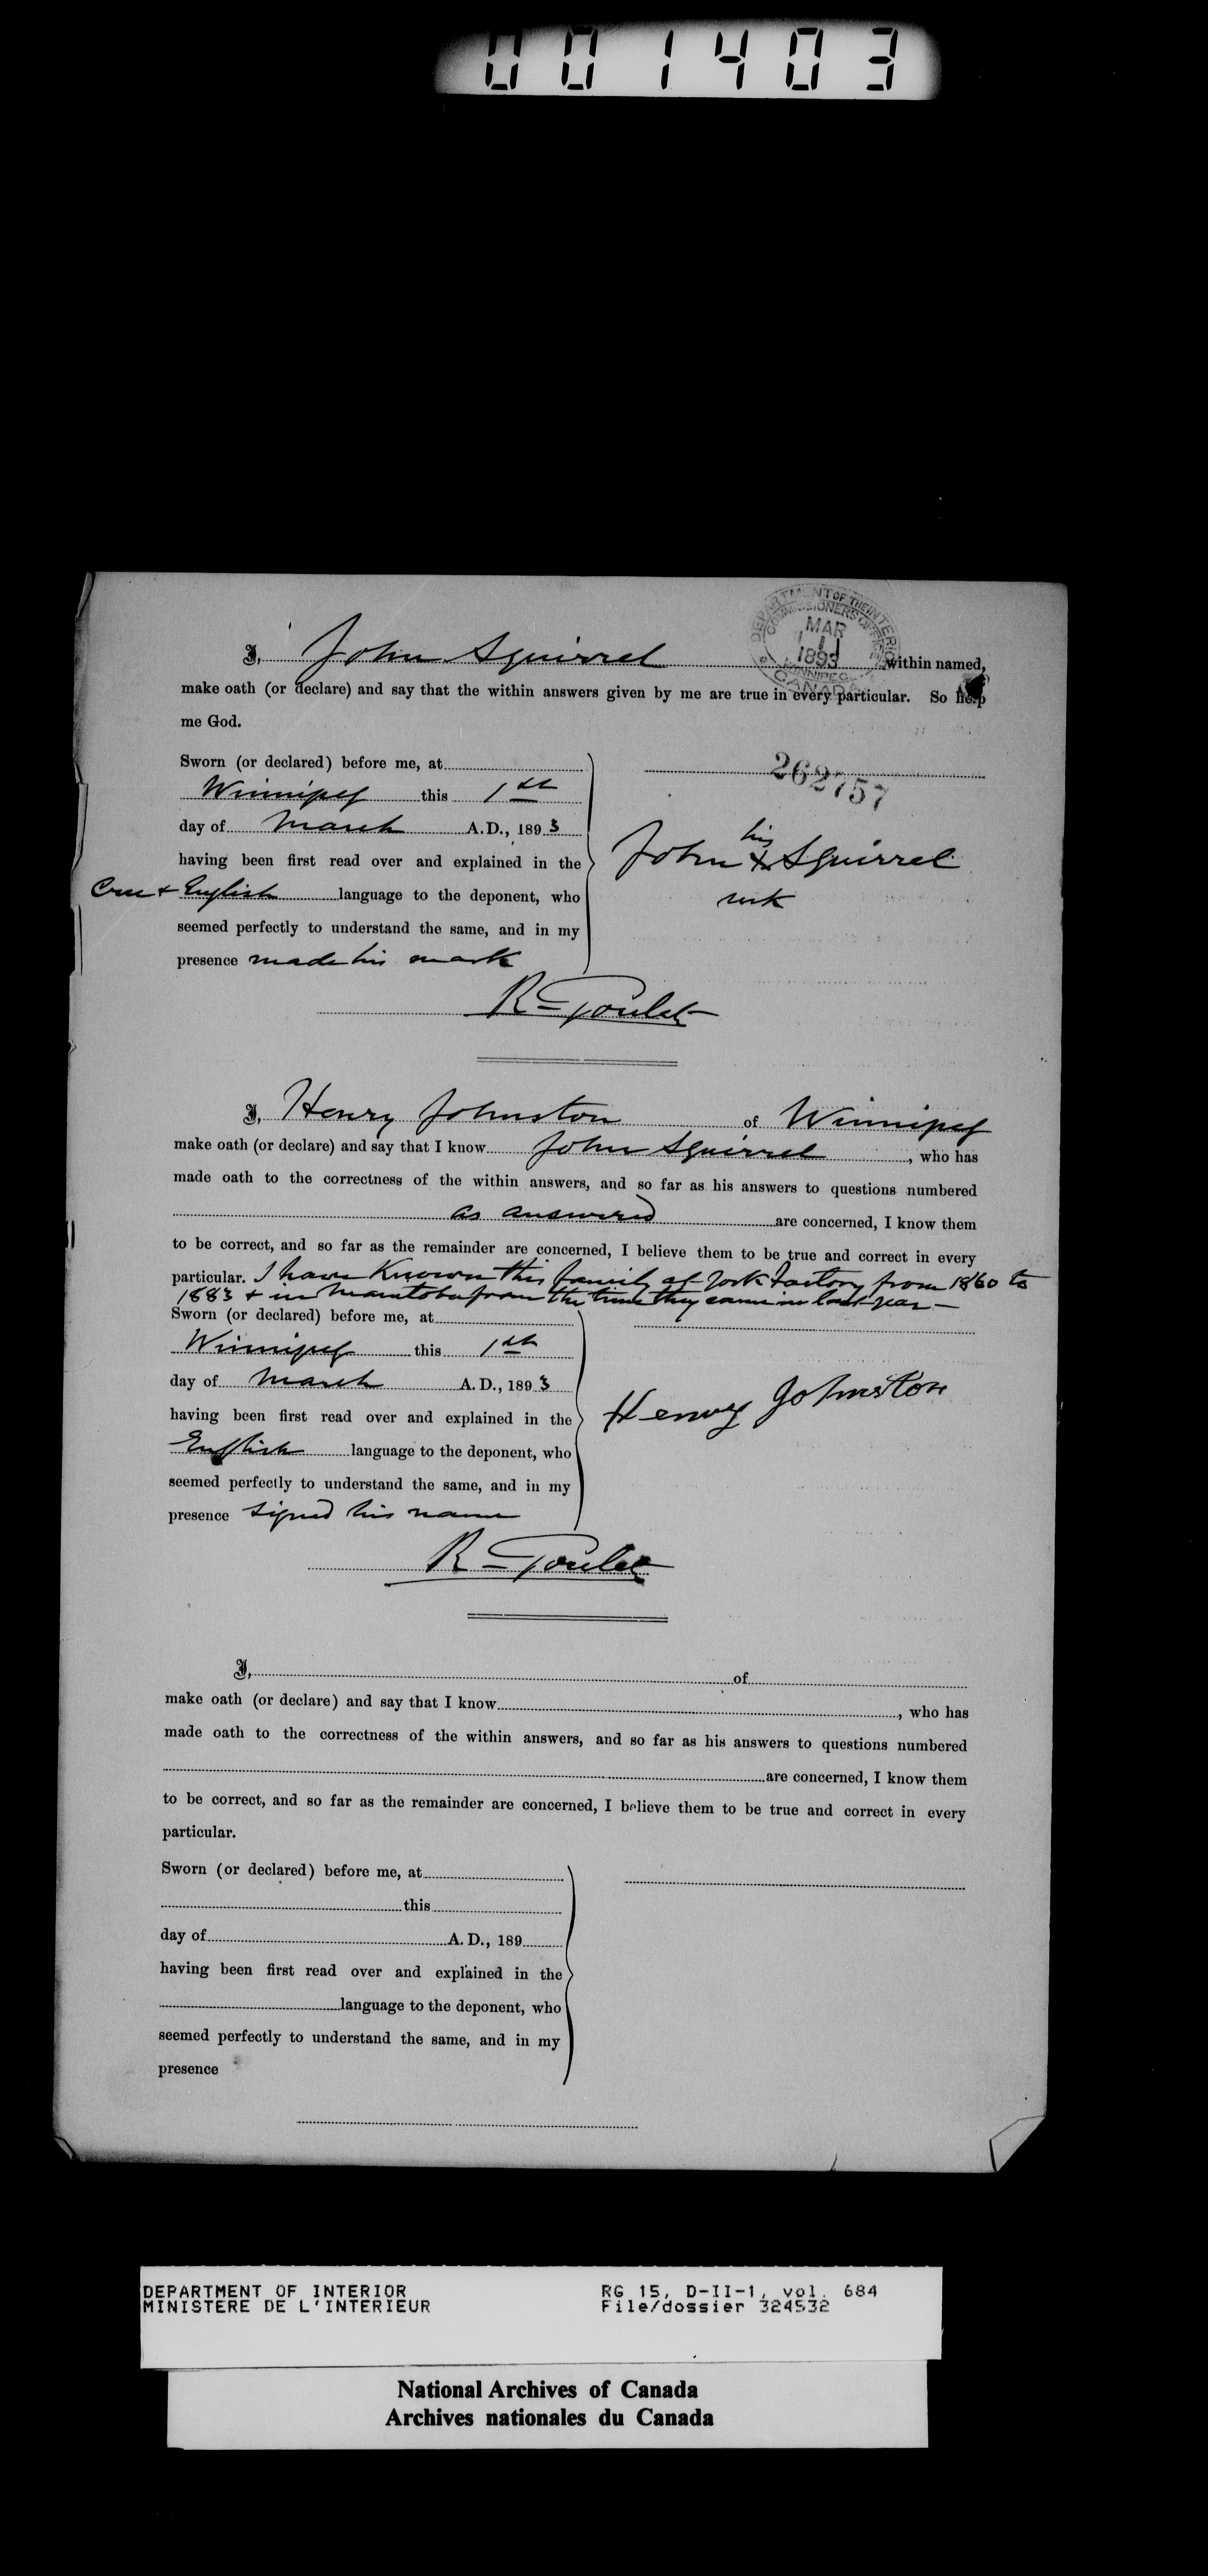 001403
DEPARTMENT OF THE INTERIOR
COMMISSIONERS OFFICE
MAR
11
1893
WINNIPEG
CANADA
I, John Squirrel within named,
make oath (or declare) and say that the within answers given by me are true in every particular. So help
me God.
Sworn (or declared) before me, at
262757
Winnipeg this 1st
day of March A.D., 1893
having been first read over and explained in the
John his X Squirrel
mrk
Cree & English language to the deponent, who
seemed perfectly to understand the same, and in my
presence made his mark
R Goulet
I, Henry Johnston of Winnipeg
make oath (or declare) and say that I know John Squirrel, who has
made oath to the correctness of the within answers, and so far as his answers to questions numbered
as answered are concerned, I know them
to be correct, and so far as the remainder are concerned, I believe them to be true and correct in every
particular. I have known this family at York Factory from 1860 to
1883 & in Manitoba from the time they came in last year —
Sworn (or declared) before me, at
Winnipeg this 1st
day of March A. D., 1893
having been first read over and explained in the
Henry Johnston
English language to the deponent, who
seemed perfectly to understand the same, and in my
presence signed his name
R Goulet
I, of
make oath (or declare) and say that I know, who has
made oath to the correctness of the within answers, and so far as his answers to questions numbered
are concerned, I know them
to be correct, and so far as the remainder are concerned, I believe them to be true and correct in every
particular.
Sworn (or declared) before me, at
this
day of A. D., 189
having been first read over and explained in the
language to the deponent, who
seemed perfectly to understand the same, and in my
presence
DEPARTMENT OF INTERIOR RG 15, D-II-1, vol. 684
MINISTERE DE L'INTERIEUR File/dossier 324532
National Archives of Canada
Archives nationales du Canada